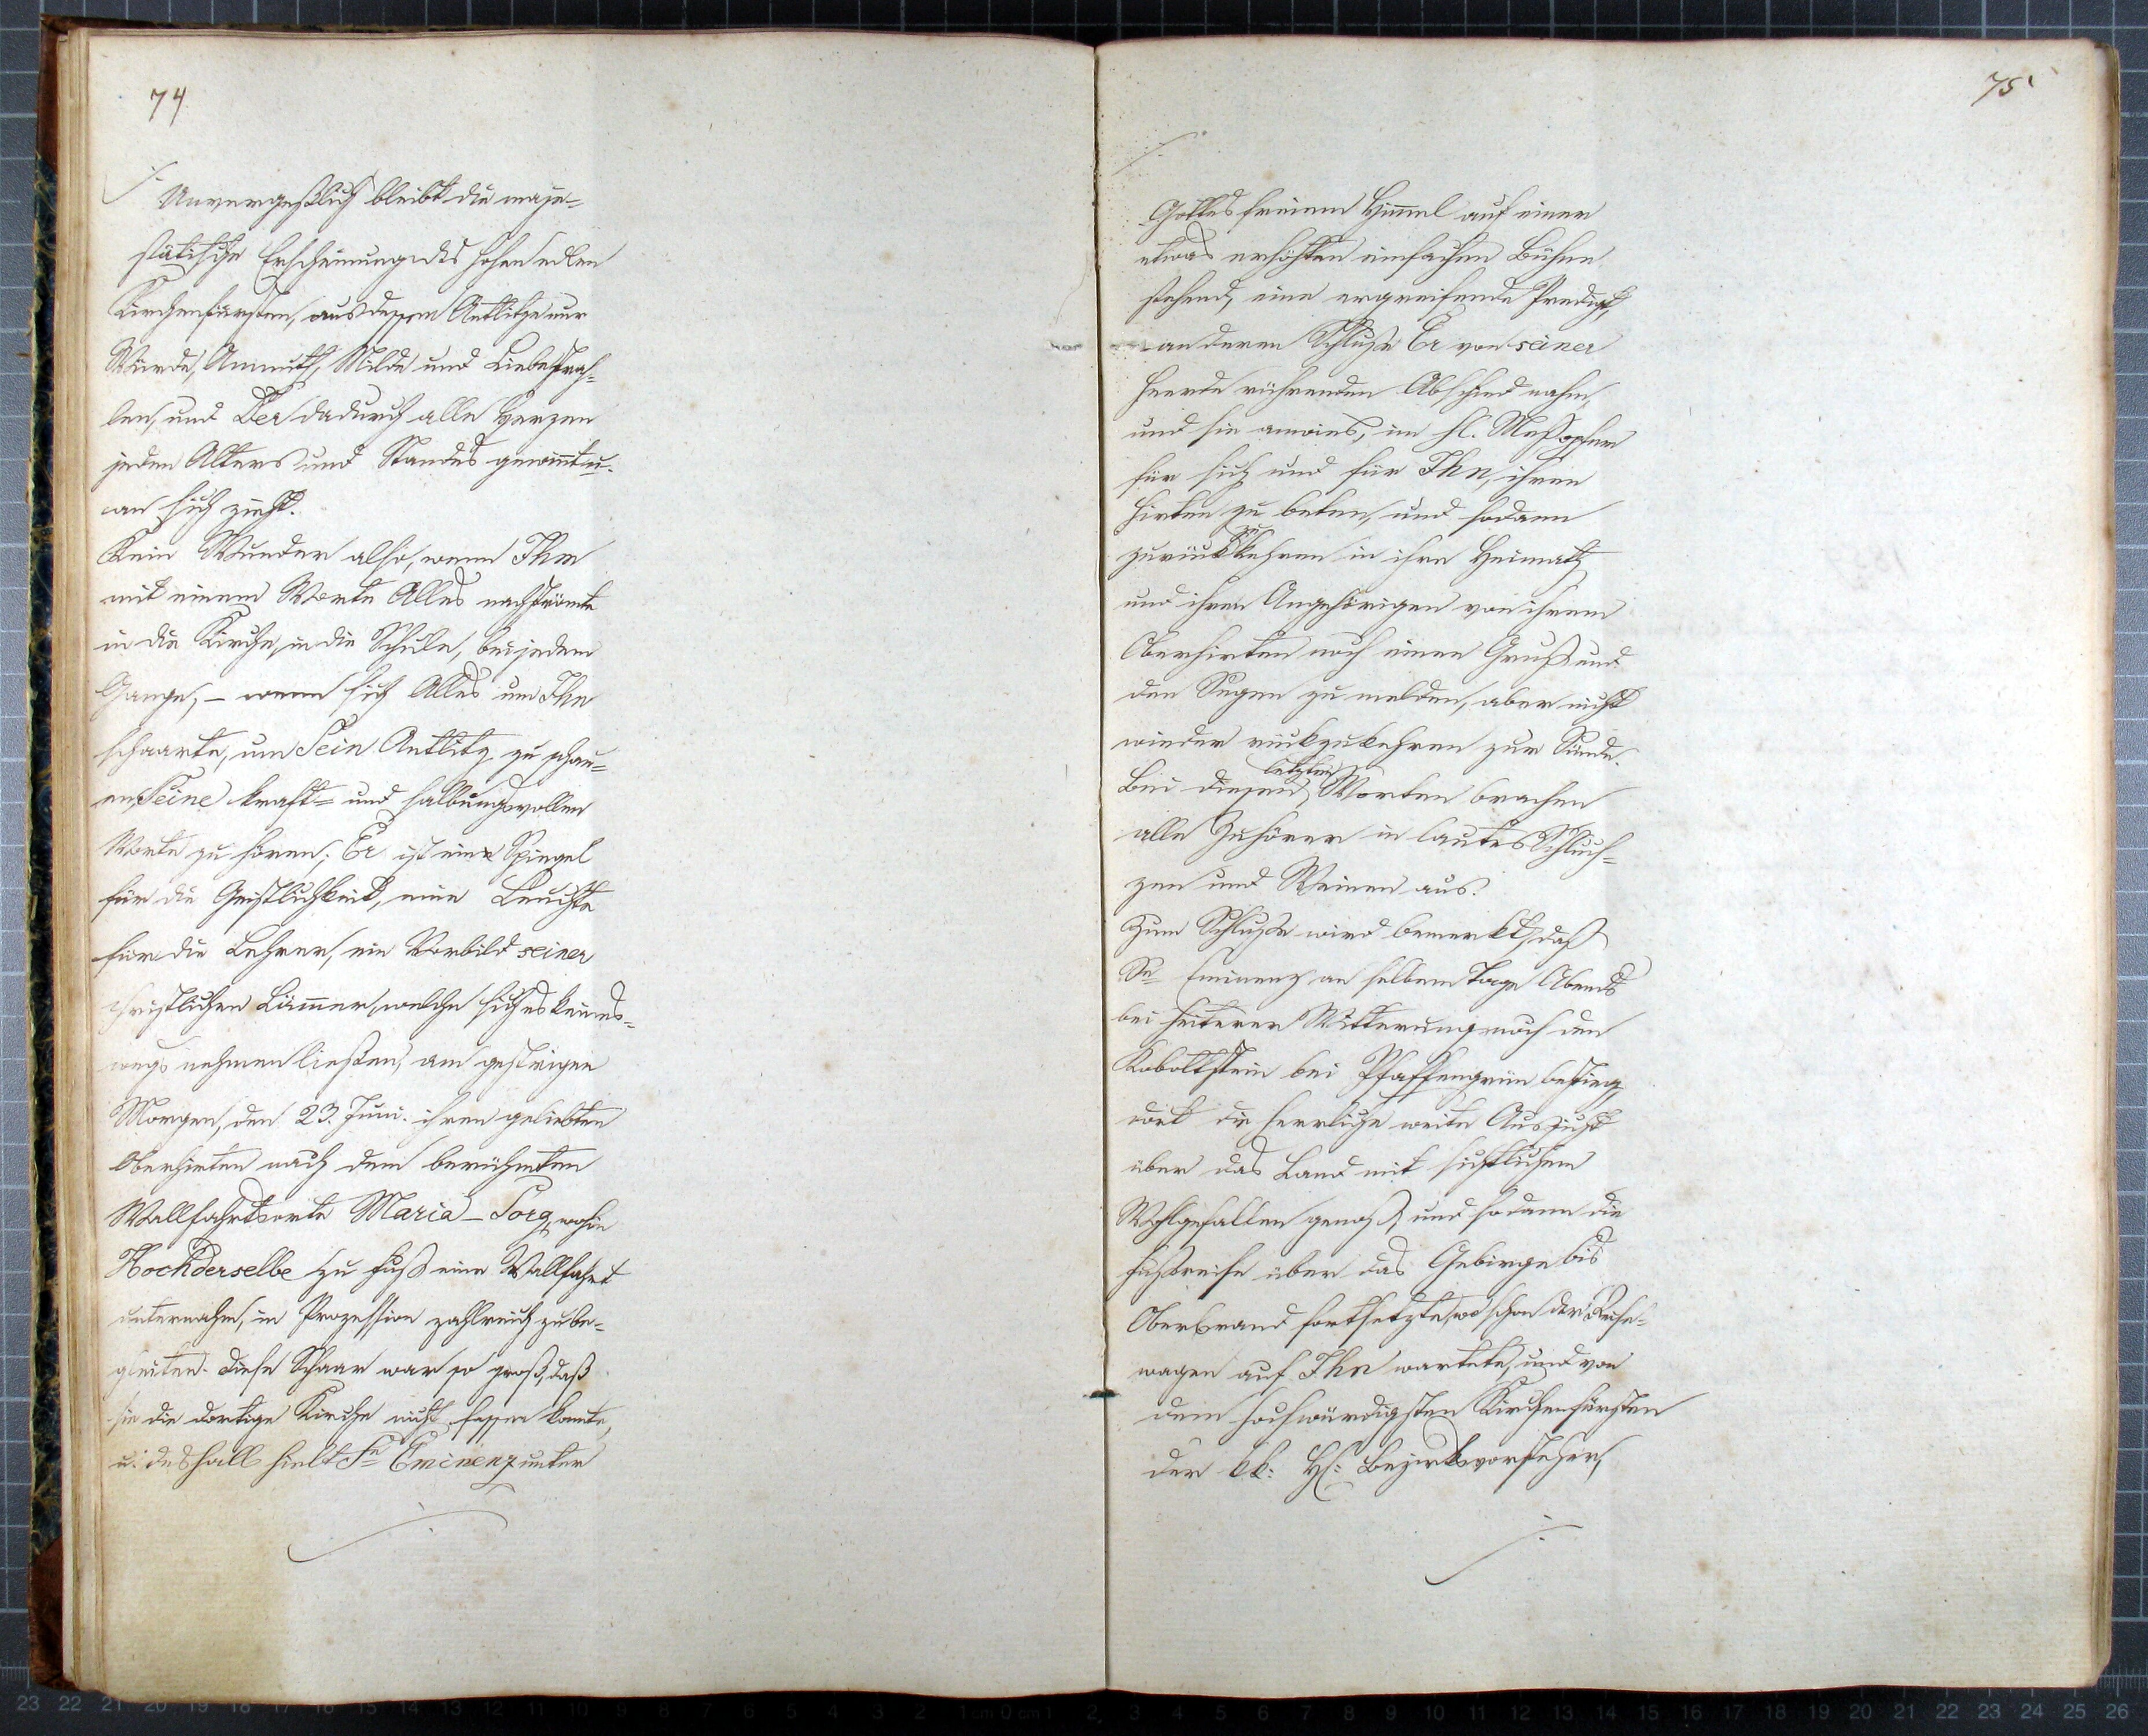 74
Unvergeßlich bleibt die maje-
stätische Erscheinung des hohen edlen
Kirchenfürsten, aus dessen Antlitze nur
Würde, Anmuth, Milde und Liebe strah-
len, und Der dadurch alle Herzen
jeden Alters und Standes gewinnt u.
an sich zieht.
Kein Wunder also, wenn Ihm
mit einem Worte Alles nachströmte
in die Kirche, in die Schule, bei jedem
Gange, – wenn sich Alles um Ihn
schaarte, um Sein Antlitz zu schau-
en, Seine kraft- und salbungsvollen
Worte zu hören; Er ist ein Spiegel
für die Geistlichkeit, eine Leuchte
für die Lehrer, ein Vorbild seiner
christlichen Lämmer, welche sich es keines-
wegs nehmen ließen, am gestrigen
Morgen, den 23. Juni. ihren geliebten
Oberhirten nach dem berühmten
Wallfahrtsorte Maria-Sorg, wohin
Hochderselbe zu Fuß eine Wallfahrt
unternahm, in Prozession zahlreich zu be-
gleiten. Diese Schaar war so groß, daß
sie die dortige Kirche nicht fassen konnte,
u. deshalb hielt Se Eminenz unter
75
Gottes freiem Himmel auf einer
etwas erhöhten einfachen Bühne
stehend, eine ergreifende Predigt,
an deren Schluße Er von seiner
Heerde rührenden Abschied nahm,
und sie anwies, im hl. Meßopfer
für sich und für Ihn, ihren
Hirten zu beten, und sodann
zurück zu kehren in ihre Heimath
und ihren Angehörigen von ihrem
Oberhirten noch einen Gruß und
den Segen zu melden, aber nicht
wieder rückzukehren zur Sünde.
Bei diesen letzten Worten brachen
alle Zuhörer in lautes Schluch-
zen und Weinen aus.
Zum Schluße wird bemerkt, daß
Se Eminenz an selbem Tage Abends
bei heiterer Witterung noch den
Koboltstein bei Pfaffengrün bestieg,
dort die herrliche weite Aussicht
über das Land mit sichtlichem
Wohlgefallen genoß, und sodann die
Fußreise über das Gebirge bis
Oberbrand fortsetzte, wo schon der Reise-
wagen auf Ihn wartete, und von
dem hochwürdigsten Kirchenfürsten
der kk: H: Bezirksvorsteher,